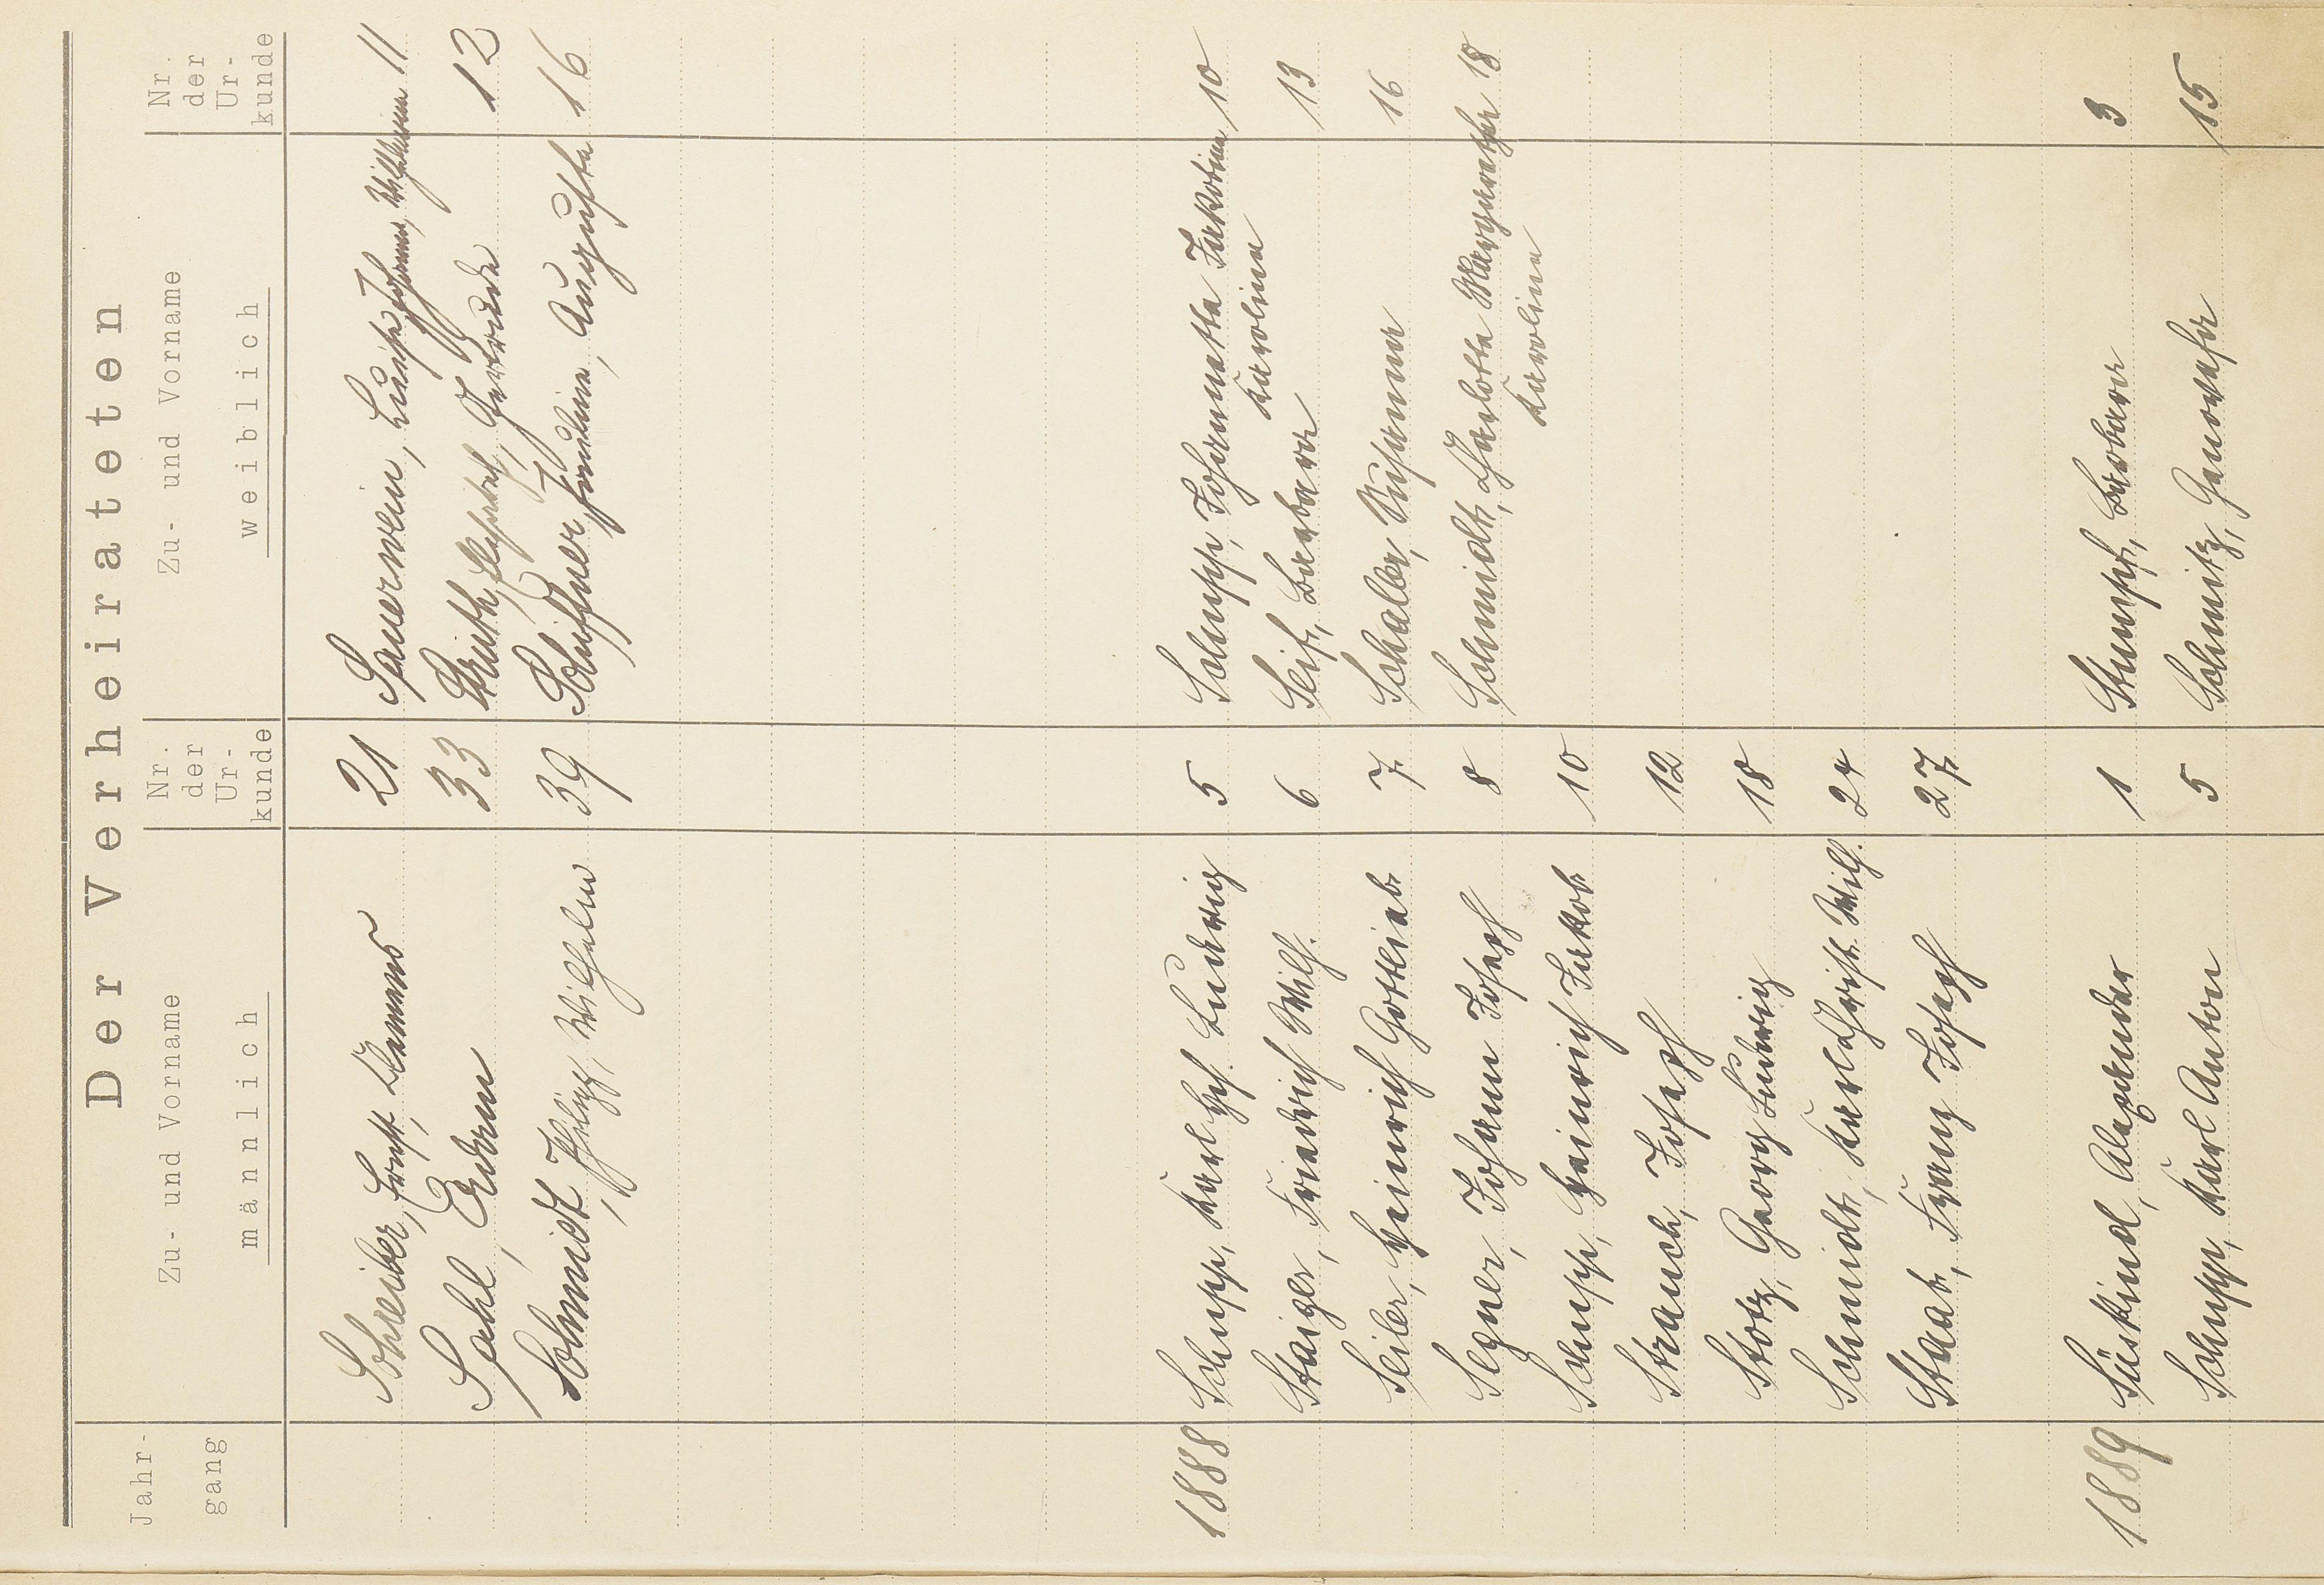 Der Verheirateten
Jahr-
gang
Zu- und Vorname
männlich
Nr.
der
Ur-
kunde
Zu- und Vorname
weiblich
Nr.
der
Ur-
kunde
Schreiber, Ernst, Clemens 21 Sauerwein, Luise Johanna, Wilhelmine 11
Sahl, Erdem 33 Struth, Elisabeth, Gertrude 12
Schmidt Philipp, Wilhelm 39 Schiffner, Emiline, Auguste 16
1888 Schupp, Karl Hch. Ludwig 5 Schupp, Johannetta Jakobine 10
Karoline
Staiger, Friedrich Wilh. 6 Seif, Barbara 13
Seiler, Heinrich Gottlieb 7 Schaller, Susanna 16
Segner, Johann Joseph 8 Schmidt, Charlotte Margarethe 18
Karoline
Schupp, Heinrich Jakob 10
Strauch, Joseph 12
Stotz, Georg Ludwig 18
Schmidt, Karl Christ. Wilh. 24
Staab, Franz Joseph 27
1889 Süskind, Alexander 1 Stumpf, Barbara 3
Schupp, Karl Anton 5 Schmitz, Genovefa 15